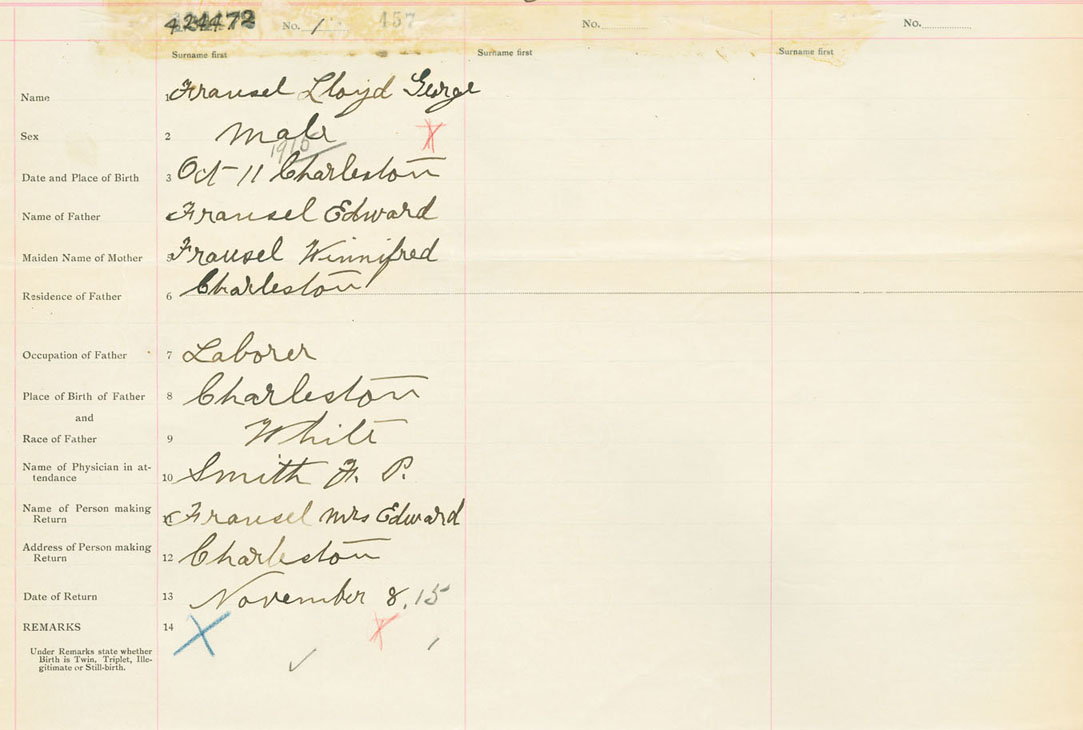 No. 1 457 No. No.
Surname first Surname first Surname first
Name 1 Fransel Lloyd George
Sex 2 Male
1915
Date and Place of Birth 3 Oct 11 Charleston
Name of Father 4 Fransel Edward
Maiden Name of Mother 5 Fransel Winnifred
Residence of Father 6 Charleston
Occupation of Father 7 Laborer
Place of Birth of Father 8 Charleston
and
Race of Father 9 White
Name of Physician in at-
tendance 10 Smith F. P.
Name of Person making
Return 11 Fransel Mrs Edward
Address of Person making
Return 12 Charleston
Date of Return 13 November 8, 15
REMARKS 14
Under Remarks state whether
Birth is Twin, Triplet, Ille-
gitimate or Still-birth.